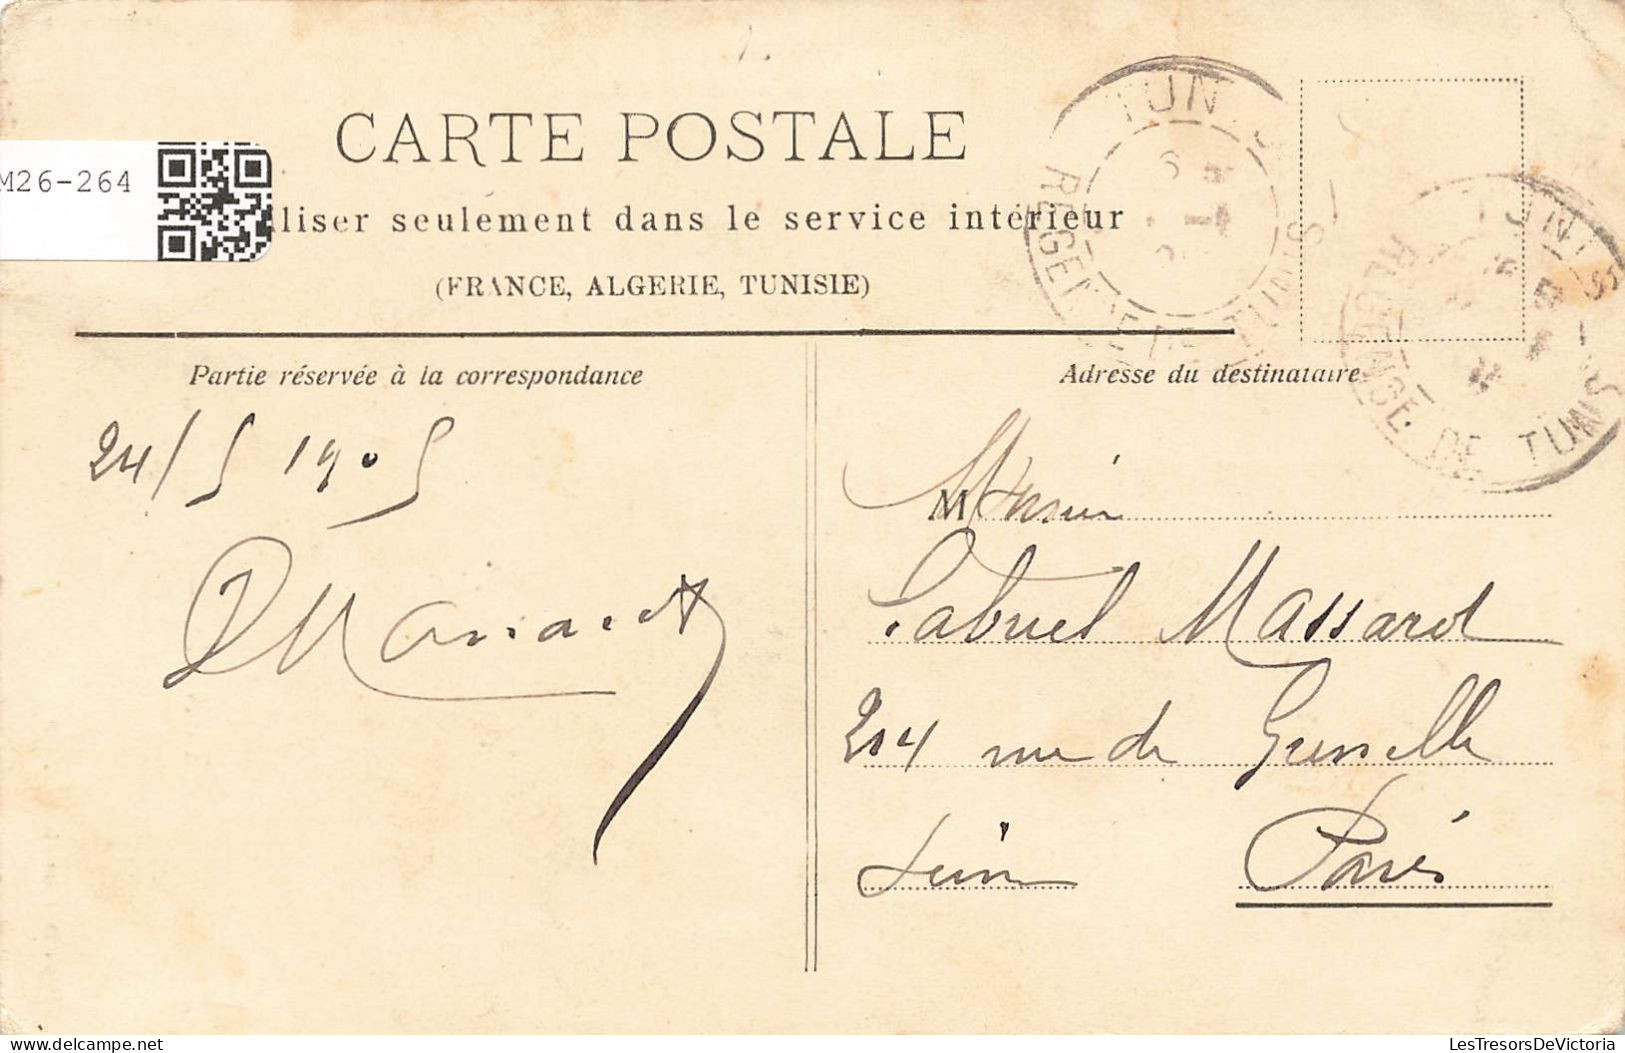 CARTE POSTALE
M26-264
liser seulement dans le service intérieur
(FRANCE, ALGERIE, TUNISIE)
TUNIS
REGENCE DE TUNIS
TUNIS
REGENCE DE TUNIS
Partie réservée à la correspondance
Adresse du destinataire
24/5 1905
Monsieur
Gabriel Massard
204 rue de Grenelle
Seine Paris
LesTresorsDeVictoria
www.delcampe.net